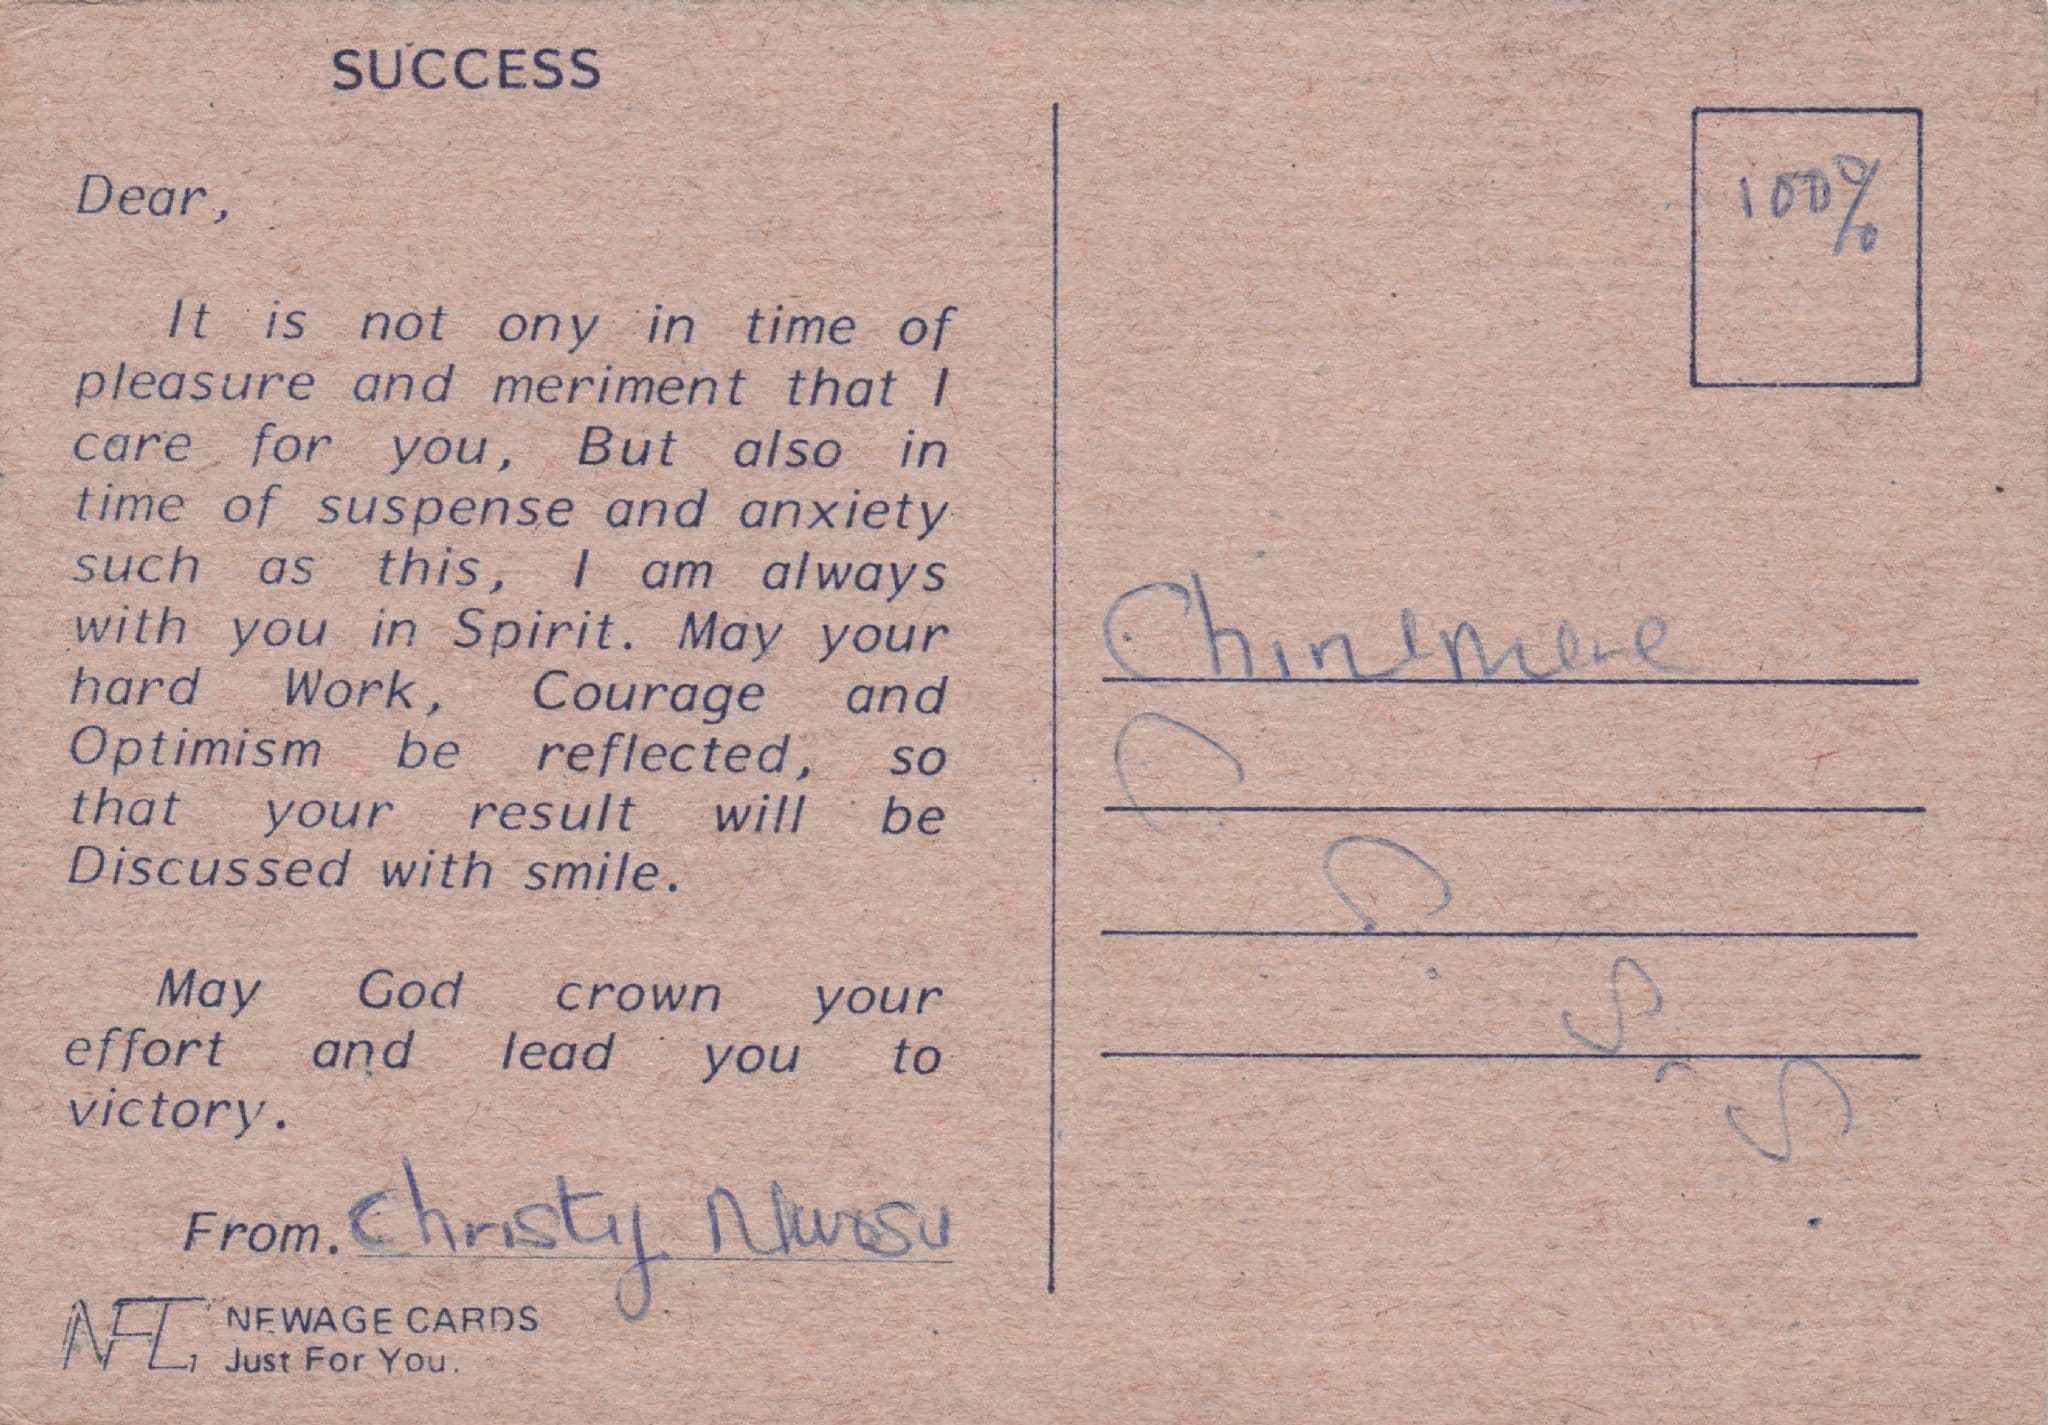 SUCCESS
Dear,
It is not ony in time of
pleasure and meriment that I
care for you, But also in
time of suspense and anxiety
such as this, I am always
with you in Spirit. May your
hard Work, Courage and
Optimism be reflected, so
that your result will be
Discussed with smile.
May God crown your
effort and lead you to
victory.
From. Christy Nwosu
NEWAGE CARDS
Just For You.
100%
Chinemere